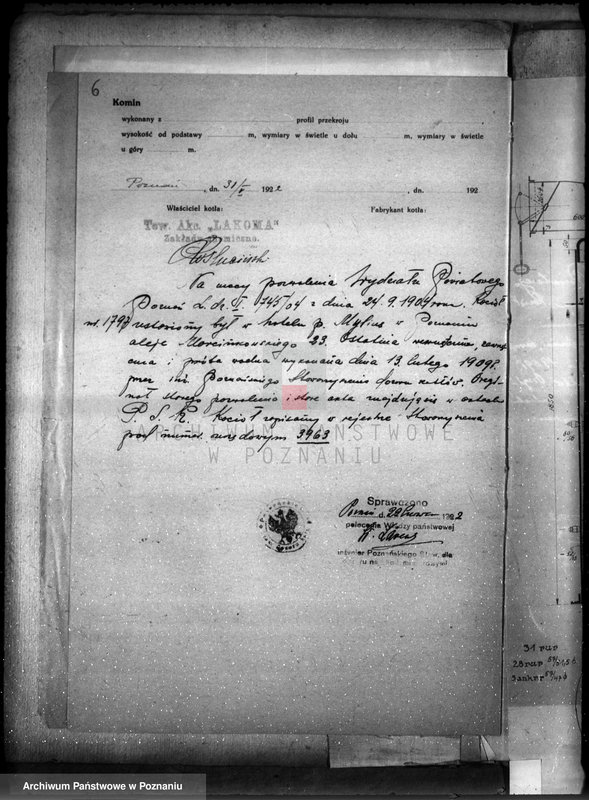 6
Komin
wykonany z profil przekroju
wysokość od podstawy m, wymiary w świetle u dołu m, wymiary w świetle
u góry m.
Poznań, dn. 31/V 1922 , dn. 192
Właściciel kotła: Fabrykant kotła:
Tow. Akc. „LAKOMA"
Zakłady Chemiczne.
Na mocy pozwolenia Wydziału Powiatowego
Poznań L. dz. 345/04 z dnia 24. 9. 1904 Kocioł
ustawiony był w hotelu p. Mylius w Poznaniu
aleje Marcinkowskiego 23. Ostatnia
i próba wodna wykonana dnia 13. lutego 1909 r.
przez inż. Poznańskiego Stowarzyszenia dozoru kotłów. Orygi-
nał starego pozwolenia i stare akta znajdują się w
P. S. K. Kocioł zapisany w rejestrze Stowarzyszenia
pod numer. urzędowym 3963
ARCHIWUM PAŃSTWOWE
W POZNANIU
Sprawdzono
Poznań d. 22 czerwca 1922
polecenia Władzy państwowej
inżynier Poznańskiego Stow. dla
31 rup
28 rup
Archiwum Państwowe w Poznaniu